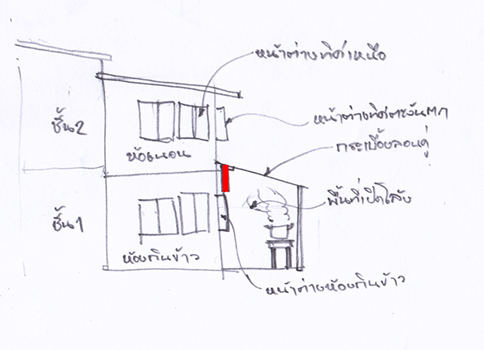 หน้าต่างทิศเหนือ
หน้าต่างทิศตะวันตก
กระเบื้องลอนคู่
ชั้น2
ห้องนอน
พื้นที่เปิดโล่ง
ชั้น1
ห้องกินข้าว
หน้าต่างห้องกินข้าว